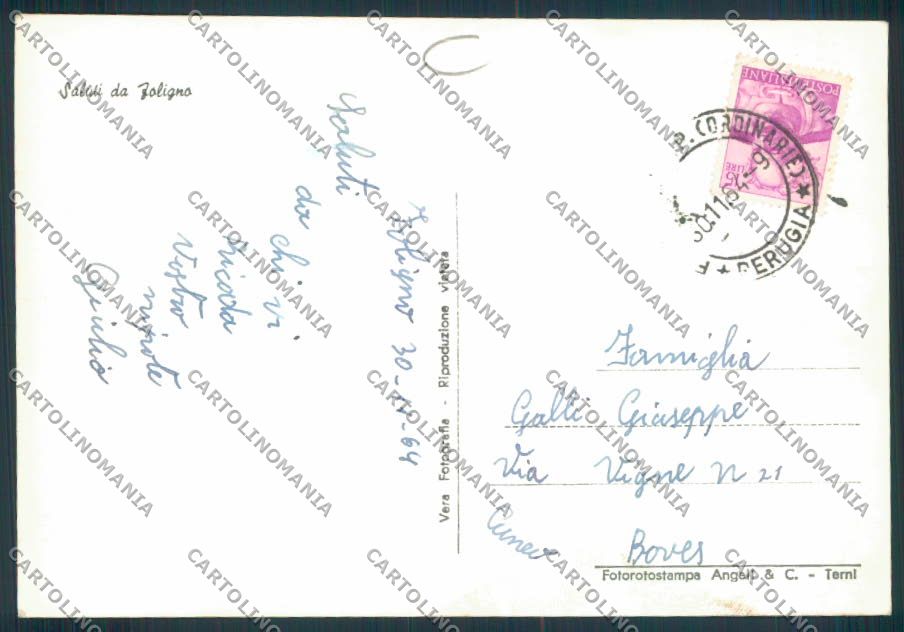 Saluti da Foligno
Foligno 30-11-64
Saluti
da
chi vi
ricorda
Vostro
nipote
Giulio
Vera Fotografia - Riproduzione vietata
POSTE ITALIANE
LIRE 15
P. (ORDINARIE) ★ PERUGIA ★
30.11.64-19
Famiglia
Galli Giuseppe
Via Vigne N 21
Boves
Cuneo
Fotorotostampa Angeli & C. - Terni
CARTOLINOMANIA